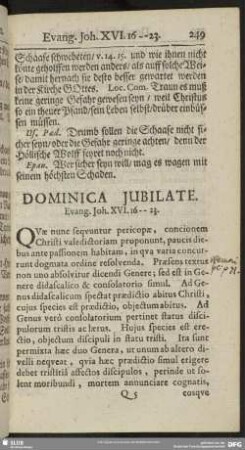 Evang. Joh. XVI. 16 -- 23. 249
Schaafe schwebeten / v. 14. 15. und wie ihnen nicht
könte geholffen werden anders / als auff solche Wei-
se damit hernach sie desto besser gewartet werden
in der Kirche GOttes. Loc. Com. Traun es muß
keine geringe Gefahr gewesen seyn / weil Christus
so ein theuer Pfand / sein Leben selbst / drüber einbüs-
sen müssen.
Us. Pæd. Drumb sollen die Schaafe nicht si-
cher seyn / oder die Gefahr geringe achten / denn der
Höllische Wolff feyret noch nicht.
Epan. Wer sicher seyn will / mag es wagen mit
seinem höchsten Schaden.
DOMINICA JUBILATE.
Evang. Joh. XVI. 16 -- 23.
QVæ nunc seqvuntur pericopæ, concionem
Christi valedictoriam proponunt, paucis die-
bus ante passionem habitam, in qva varia concur-
runt dogmata ordine resolvenda. Præsens textus
non uno absolvitur dicendi Genere; sed est in Ge-
nere didascalico & consolatorio simul. Ad Ge-
nus didascalicum spectat prædictio abitus Christi,
cujus species est prædictio, objectum abitus. Ad
Genus verò consolatorium pertinet status disci-
pulorum tristis ac lætus. Hujus species est ere-
ctio, objectum discipuli in statu tristi. Ita sunt
permixta hæc duo Genera, ut unum ab altero di-
velli neqveat, qvia hæc prædictio simul erigere
debet tristitiâ affectos discipulos, perinde ut so-
lent moribundi, mortem annunciare cognatis,
Q 5 eosqve
SLUB
DFG